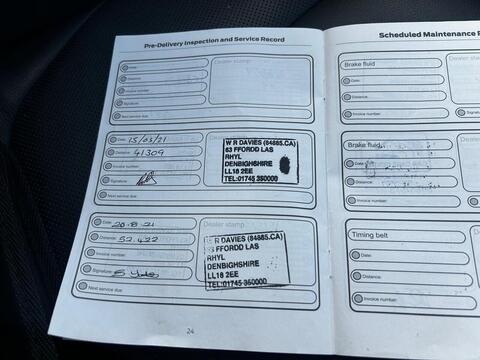 Pre-Delivery Inspection and Service Record
Date:
Distance:
Invoice number:
Signature:
Next service due:
Dealer stamp
Date: 15/03/21
Distance: 41309
Invoice number:
Signature:
Next service due:
W R DAVIES (84885.CA)
63 FFORDD LAS
RHYL
DENBIGHSHIRE
LL18 2EE
TEL:01745 350000
Date: 20.8.21
Distance: 52.422
Invoice number:
Signature:
Next service due:
Dealer stamp
R DAVIES (84885.CA)
FFORDD LAS
RHYL
DENBIGHSHIRE
LL18 2EE
TEL:01745 350000
24
Scheduled Maintenance
Brake fluid
Date:
Distance:
Invoice number:
Brake fluid
Date:
Distance:
Invoice number:
Timing belt
Date:
Distance:
Invoice number: